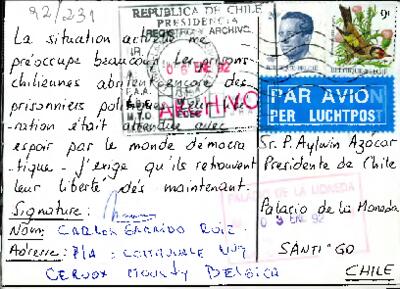 92/231
REPUBLICA DE CHILE
PRESIDENCIA
REGISTRO Y ARCHIVO
06 ENE 92
ARCHIVO
La situation actuelle me
préoccupe beaucoup. Les prisons
chiliennes abritent encore des
prisonniers politiques.
-nation était attendue avec
espoir par le monde démocra
-tique - J'exige qu'ils retrouvent
leur liberté dès maintenant.
Signature:
Nom: CARLOS GARRIDO RUIZ
Adresse: COMMUNALE
BELGICA
9F
BELGIË
PAR AVION
PER LUCHTPOST
Sr. P. Aylwin Azócar
Presidente de Chile
PALACIO DE LA MONEDA
Palacio de la Moneda
ENE 92
SANTIAGO
CHILE